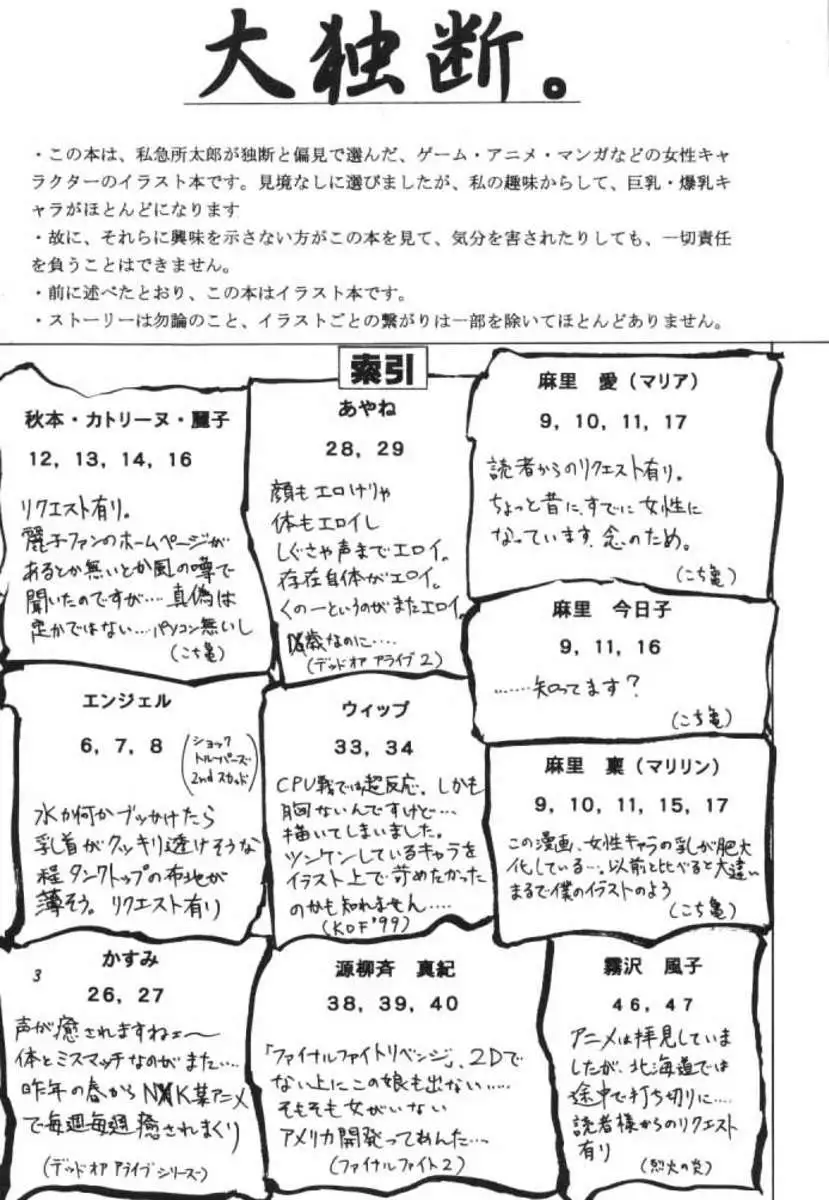 大独断。
・この本は、私急所太郎が独断と偏見で選んだ、ゲーム・アニメ・マンガなどの女性キャ
ラクターのイラスト本です。見境なしに選びましたが、私の趣味からして、巨乳・爆乳キ
ャラがほとんどになります
・故に、それらに興味を示さない方がこの本を見て、気分を害されたりしても、一切責任
を負うことはできません。
・前に述べたとおり、この本はイラスト本です。
・ストーリーは勿論のこと、イラストごとの繋がりは一部を除いてほとんどありません。
索引
秋本・カトリーヌ・麗子
12, 13, 14, 16
リクエスト有り。
麗子ファンのホームページが
あるとか無いとか風の噂で
聞いたのですが…. 真偽は
定かではない…パソコン無いし
(こち亀)
あやね
28, 29
顔もエロけりゃ
体もエロイし
しぐさや声までエロイ。
存在自体がエロイ。
くの一というのがまたエロイ。
歳なのに….
(デッド オア アライブ 2)
麻里 愛(マリア)
9, 10, 11, 17
読者からのリクエスト有り。
ちょっと昔に、すでに女性に
なっています。念のため。
(こち亀)
麻里 今日子
9, 11, 16
……. 知ってます?
(こち亀)
エンジェル
6, 7, 8
(ショック
トルーパーズ
2nd スカッド)
水か何かブッかけたら
乳首がクッキリ透けそうな
程タンクトップの布地が
薄そう。リクエスト有り
ウィップ
33, 34
CPU戦では超反応。しかも
胸ないんですけど…
描いてしまいました。
ツンケンしているキャラを
イラスト上で苛めたかった
のかも知れません….
(KOF'99)
麻里 稟(マリリン)
9, 10, 11, 15, 17
この漫画、女性キャラの乳が肥大
化している…。以前と比べると大違い
まるで僕のイラストのよう
(こち亀)
かすみ
3
26, 27
声が癒されますねェ〜
体とミスマッチなのがまた….
昨年の春からNXK某アニメ
で毎週毎週癒されまくり
(デッド オア アライブ シリーズ)
源柳斉 真紀
38, 39, 40
「ファイナルファイトリベンジ」、2Dで
ない上にこの娘も出ない…..
そもそも女がいない
アメリカ開発ってあんた…
(ファイナルファイト2)
霧沢 風子
46, 47
アニメは拝見していま
したが、北海道では
途中で打ち切りに….
読者様からのリクエスト
有り
(烈火の炎)